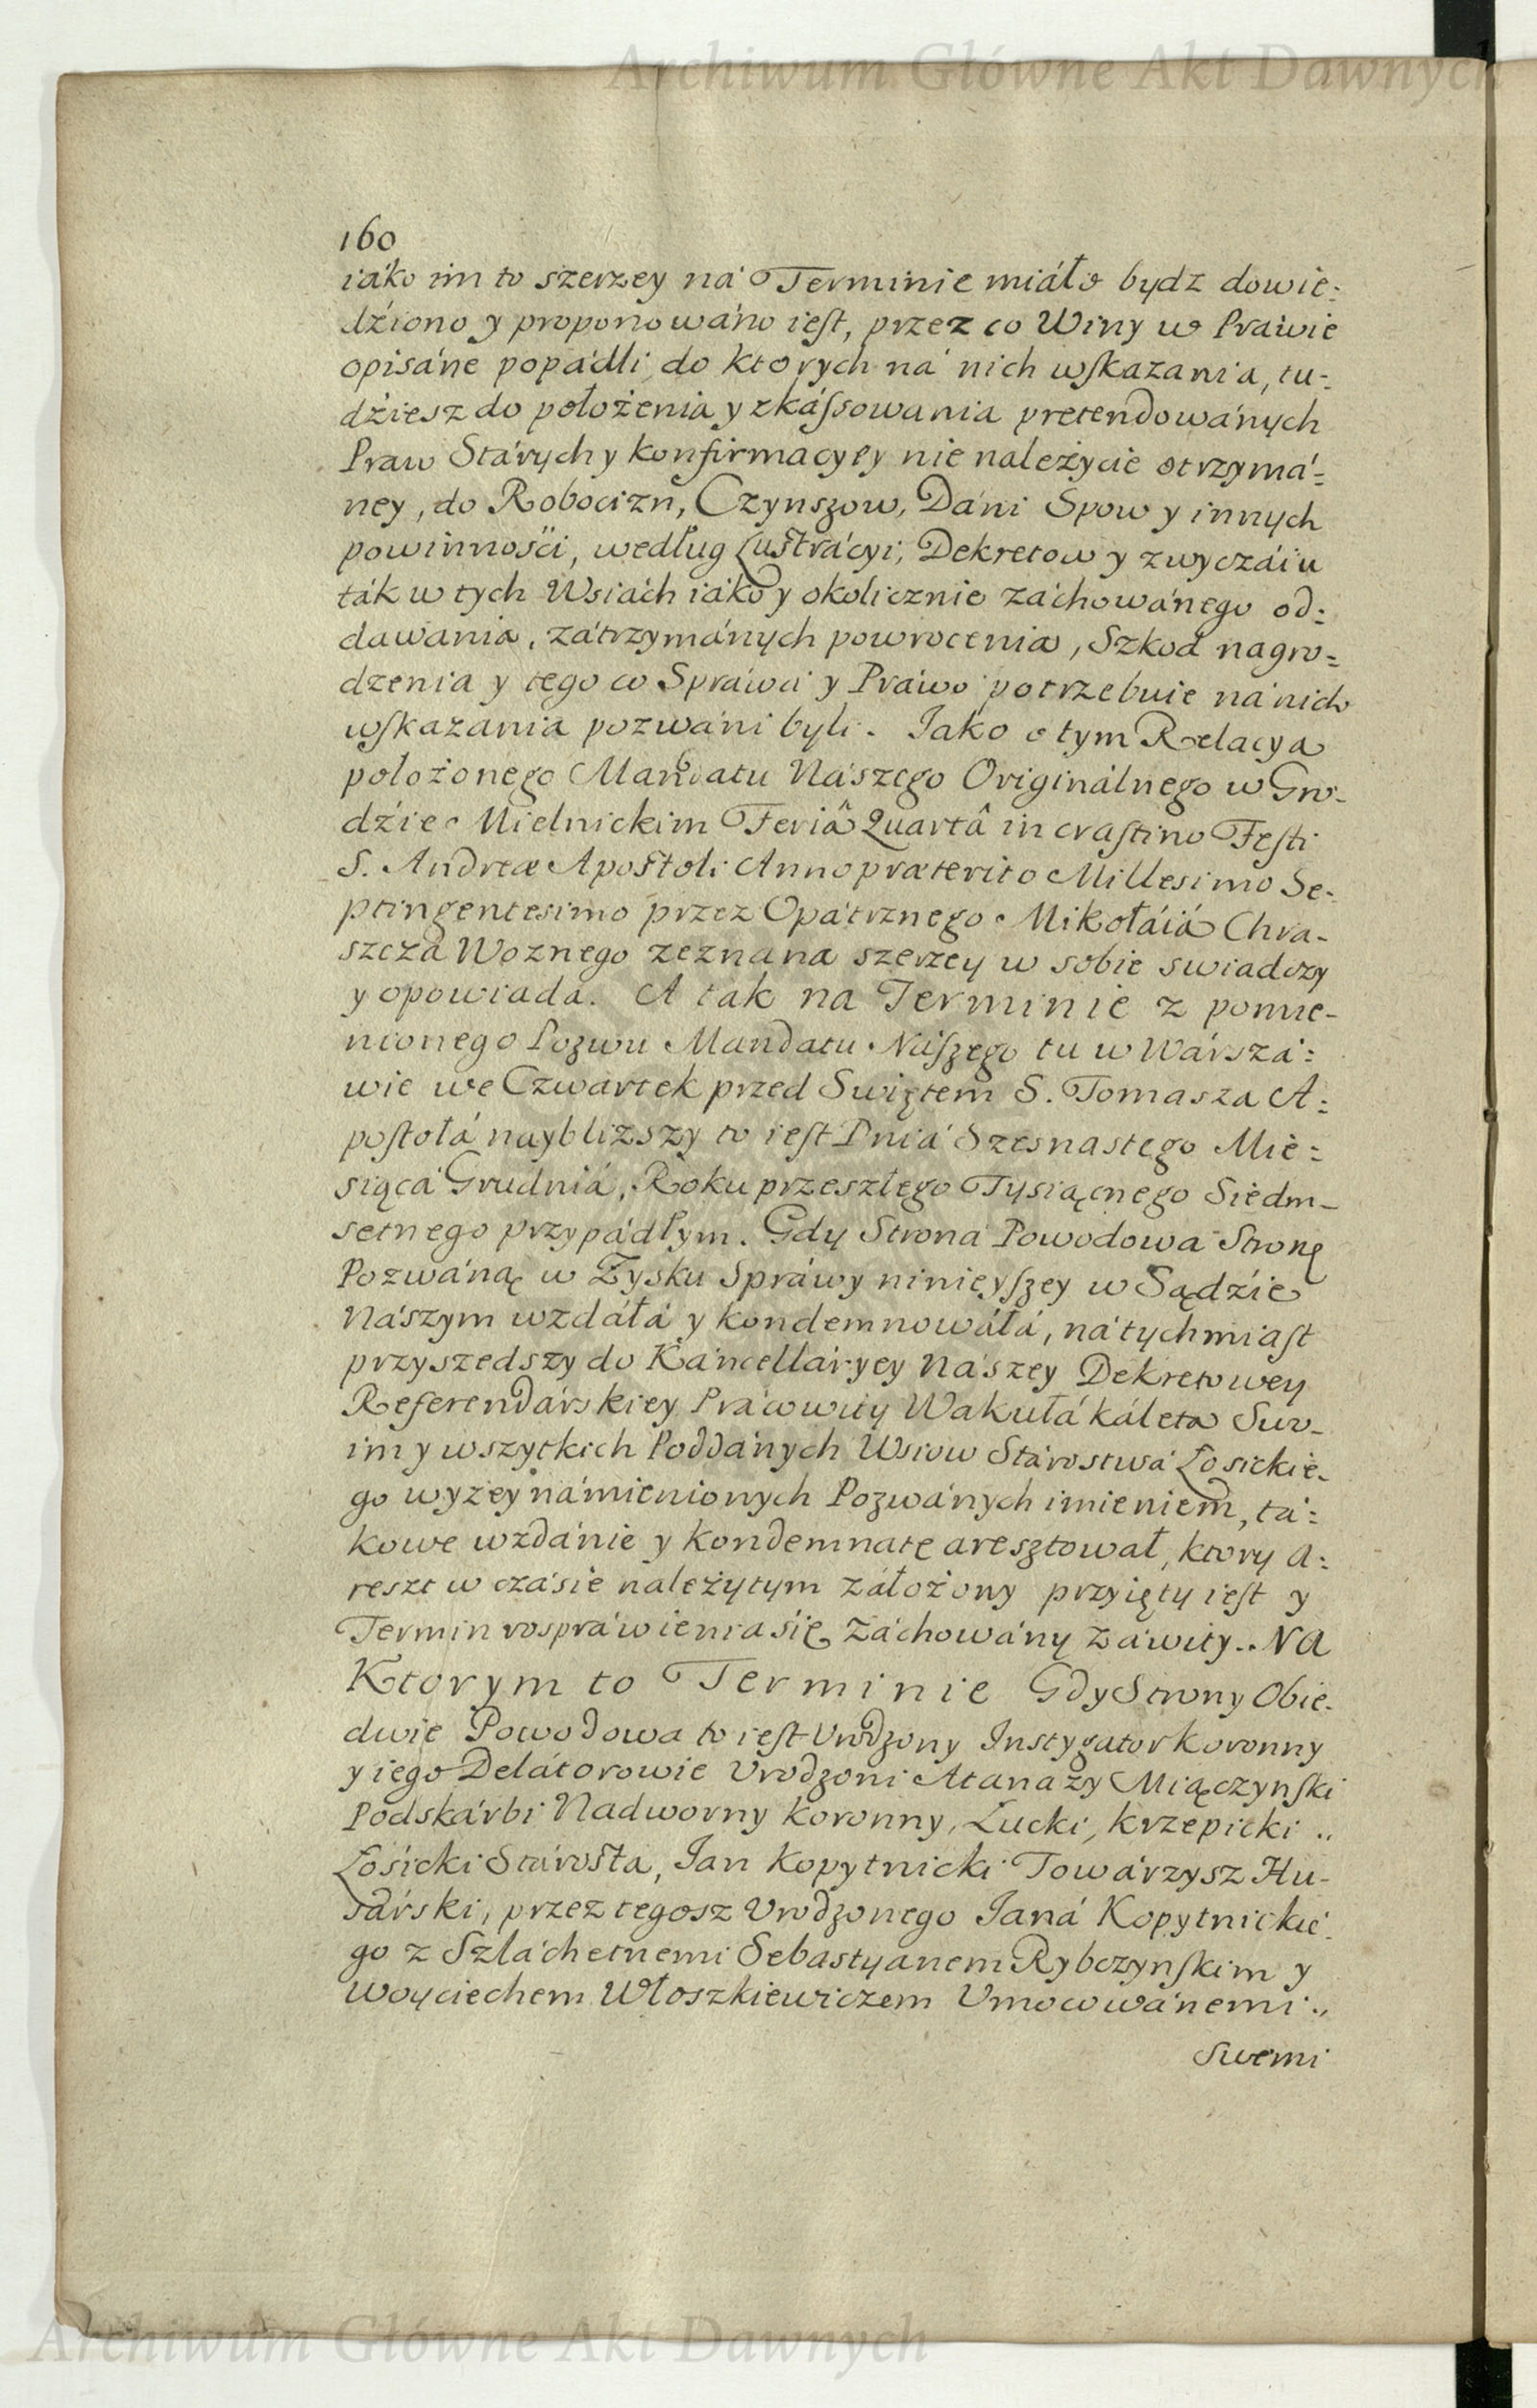 Archiwum Główne Akt Dawnych
160
iáko im to szerzey ná Terminie miáło bydz dowie:
dźiono y proponowáno iest, przez co Winy w Práwie
opisáne popádli, do ktorych ná nich wskazania, tu-
dźiesz do położenia y zkássowania pretendowánych
Praw Stárych y konfirmacyey nie należycie otrzymá-
ney, do Robocizn, Czynszow, Dáni Spow y innych
powinnośći, według Lustrácyi, Dekretow y zwyczáiu
ták w tych Wsiách iáko y okolicznie záchowánego od:
dawania, zátrzymánych powrocenia, Szkod nagro-
dzenia y tego co Spráwá y Práwo potrzebuie ná nich
wskazania pozwáni byli. Iako o tym Relacya
położonego Mandatu Nászego Originálnego w Gro-
dźie Mielnickim Feriâ Quartâ in crastino Festi
S. Andreæ Apostoli Anno præterito Millesimo Se-
ptingentesimo przez Opátrznego Mikołáiá Chra-
szczá Woznego zeznana szerzey w sobie swiadczy
y opowiada. A tak na Terminie z pomie-
nionego Pozwu Mandatu Nászego tu w Wársza:
wie we Czwartek przed Swiętem S. Tomasza A:
postołá nayblizszy to iest Dniá Szesnastego Mie:
siącá Grudniá, Roku przeszłego Tysiącnego Siedm-
setnego przypádłym. Gdy Strona Powodowa Stronę
Pozwáną w Zysku Spráwy ninieyszey w Sądźie
Nászym wzdáłá y kondemnowáłá, nátychmiast
przyszedszy do Káncelláryey Nászey Dekretowey
Referendárskiey Prácowity Wakułá káleta Swo-
im y wszytkich Poddánych Wsiow Stárostwá Łosickie-
go wyzey námienionych Pozwánych imieniem, tá:
kowe wzdánie y kondemnatę aresztował, ktory A:
reszt w czásie należytym záłożony przyięty iest y
Termin rospráwienia się záchowány záwity.. NA
Ktorym to Terminie Gdy Strony Obie-
dwie Powodowa to iest Vrodzony Instygator koronny
y iego Delátorowie Vrodzoni Atanázy Miączynski
Podskárbi Nadworny koronny, Łucki, krzepicki ..
Łosicki Stárosta, Ian kopytnicki Towárzysz Hu-
sárski, przez tegosz Vrodzonego Janá Kopytnickie-
go z Szláchetnemi Sebastyanem Rybczynskim y
Woyciechem Włoszkiewiczem Vmocowánemi..
Swemi
Archiwum Główne Akt Dawnych